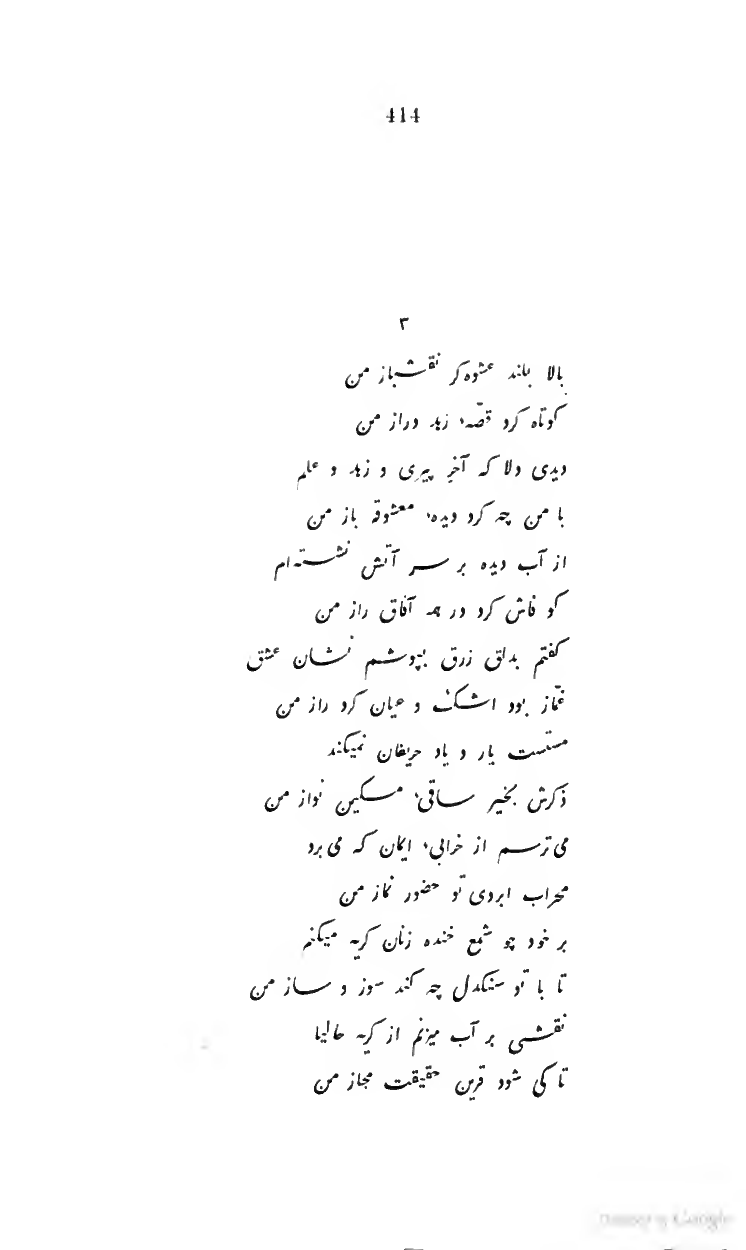 414
۳
بالا بلند عشوه‌کر نقشباز من
کوتاه کرد قصّهٔ زهد دراز من
دیدی دلا که آخرِ پیری و زهد و علم
با من چه کرد دیدهٔ معشوقه باز من
از آب دیده بر سر آتش نشسته‌ام
کو فاش کرد در همه آفاق راز من
کفتم بدلق زرق بپوشم نشان عشق
غمّاز بود اشک و عیان کرد راز من
مستست یار و یاد حریفان نمیکند
ذکرش بخیر ساقیٔ مسکین نواز من
می‌ترسم از خرابیٔ ایمان که می‌برد
محراب ابروی تو حضور نماز من
بر خود چو شمع خنده زنان کریه میکنم
تا با تو سنکدل چه کند سوز و ساز من
نقشی بر آب میزنم از کریه حالیا
تا کی شود قرین حقیقت مجاز من
Digitized by Google